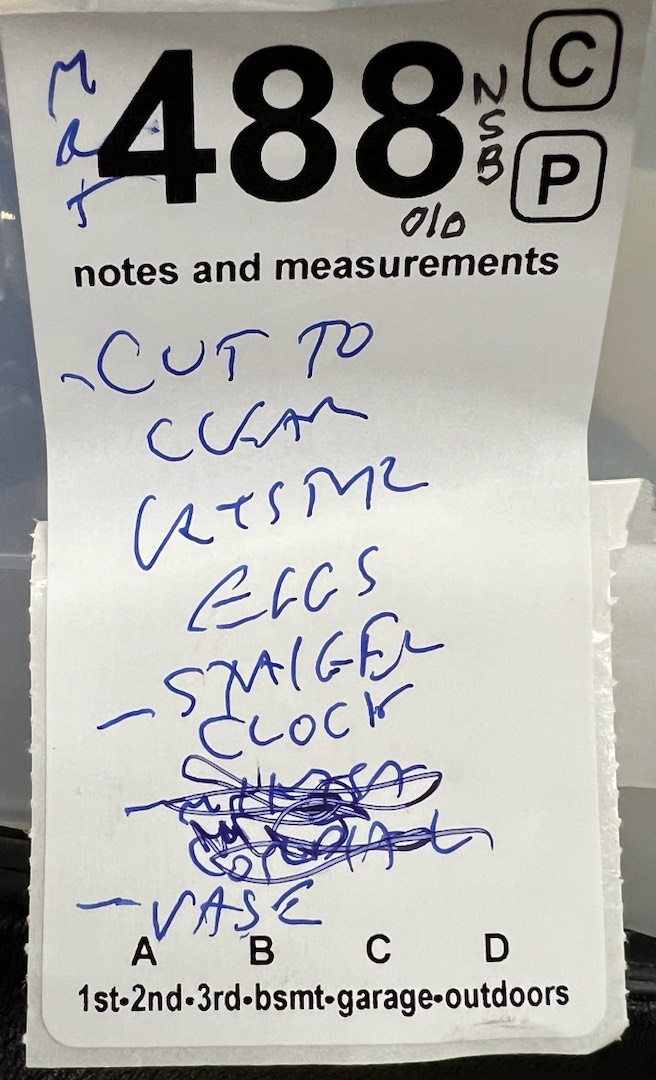 Mat
488
NSB
C
P
010
notes and measurements
- CUT TO
CLEAR
CRYSTAL
EGGS
- STAIGER
CLOCK
- VASE
A B C D
1st•2nd•3rd•bsmt•garage•outdoors